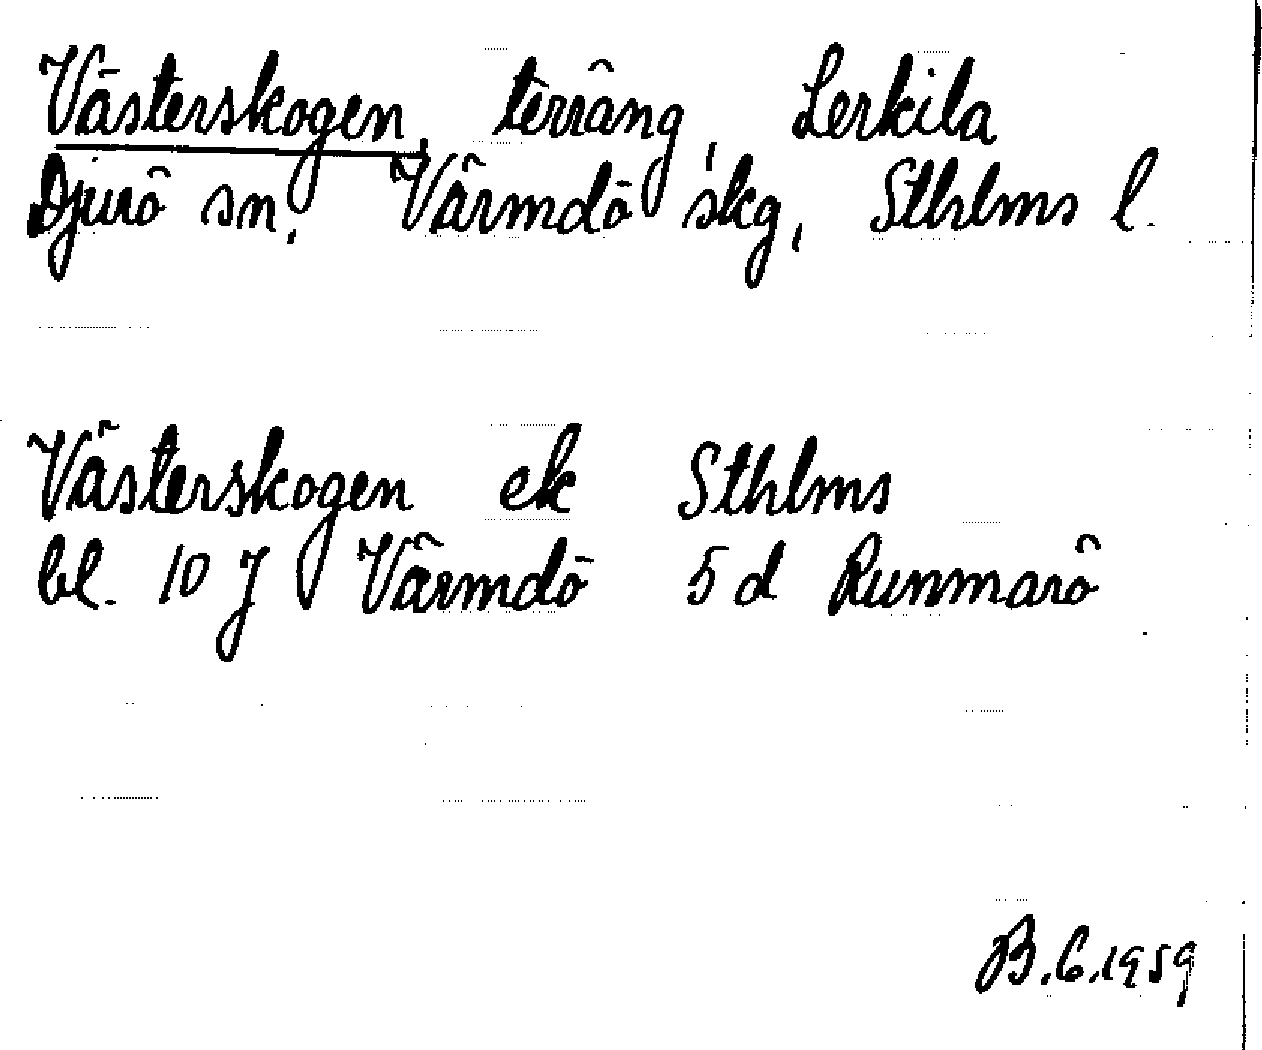 Västerskogen, terräng, Lerkila
Djurö sn, Värmdö skg, Sthlms l.
Västerskogen ek Sthlms
bl. 10 J Värmdö 5 d Runmarö
B.G.1959